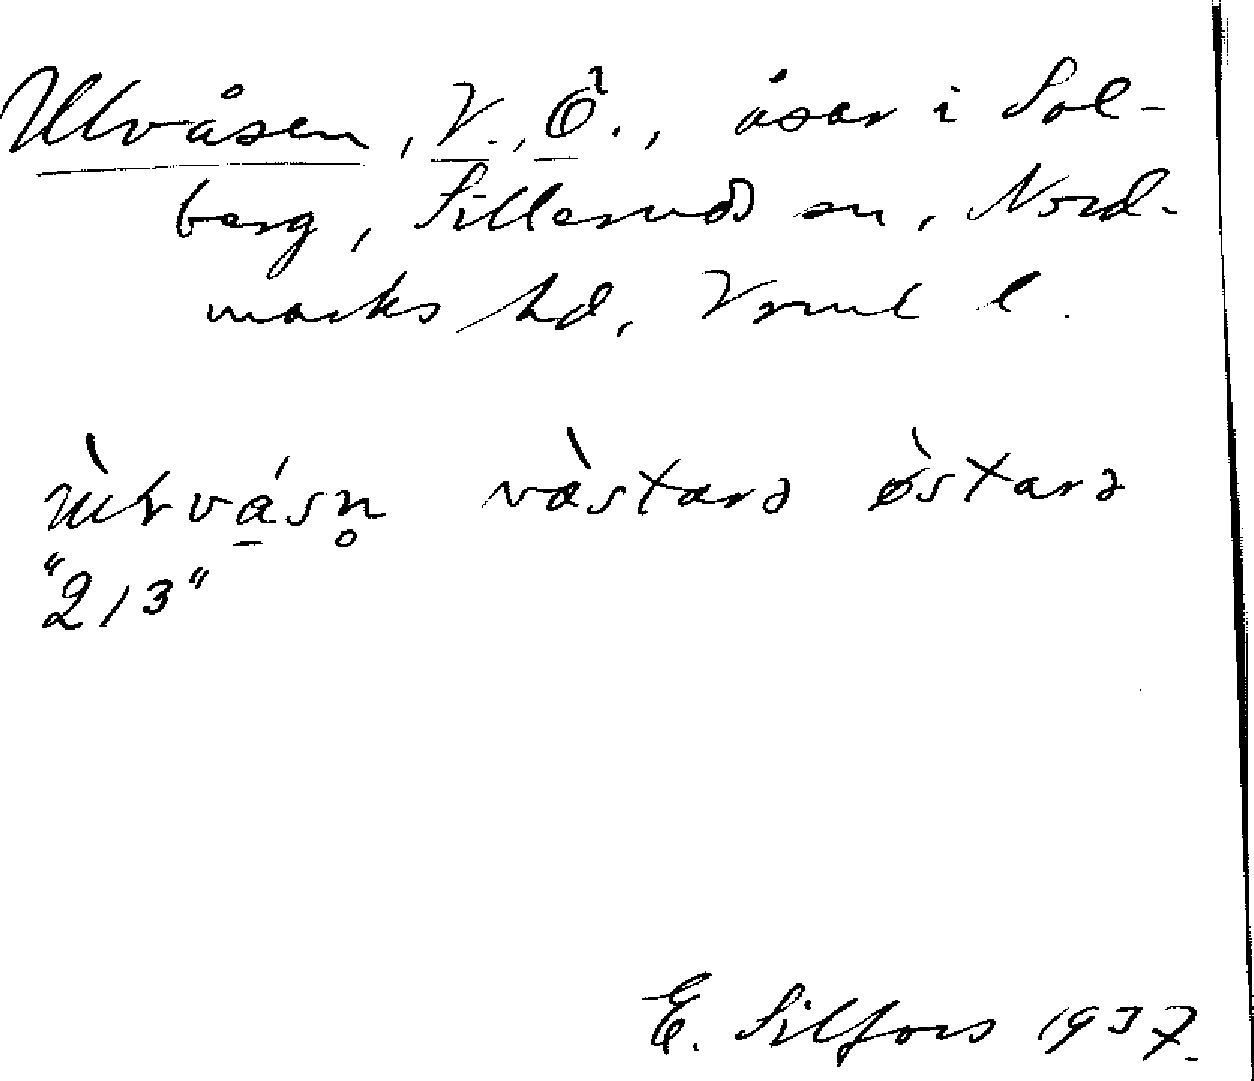 Ulvåsen, V., Ö., åsar i Sol-
berg, Sillerud sn, Nord-
marks hd, Vrml l.
vä̀starə ø̀starə
"2/3"
E. Silfors 1937.